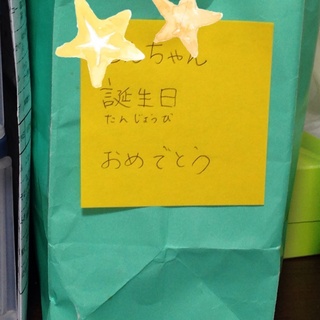 ちゃん
誕生日
たんじょうび
おめでとう